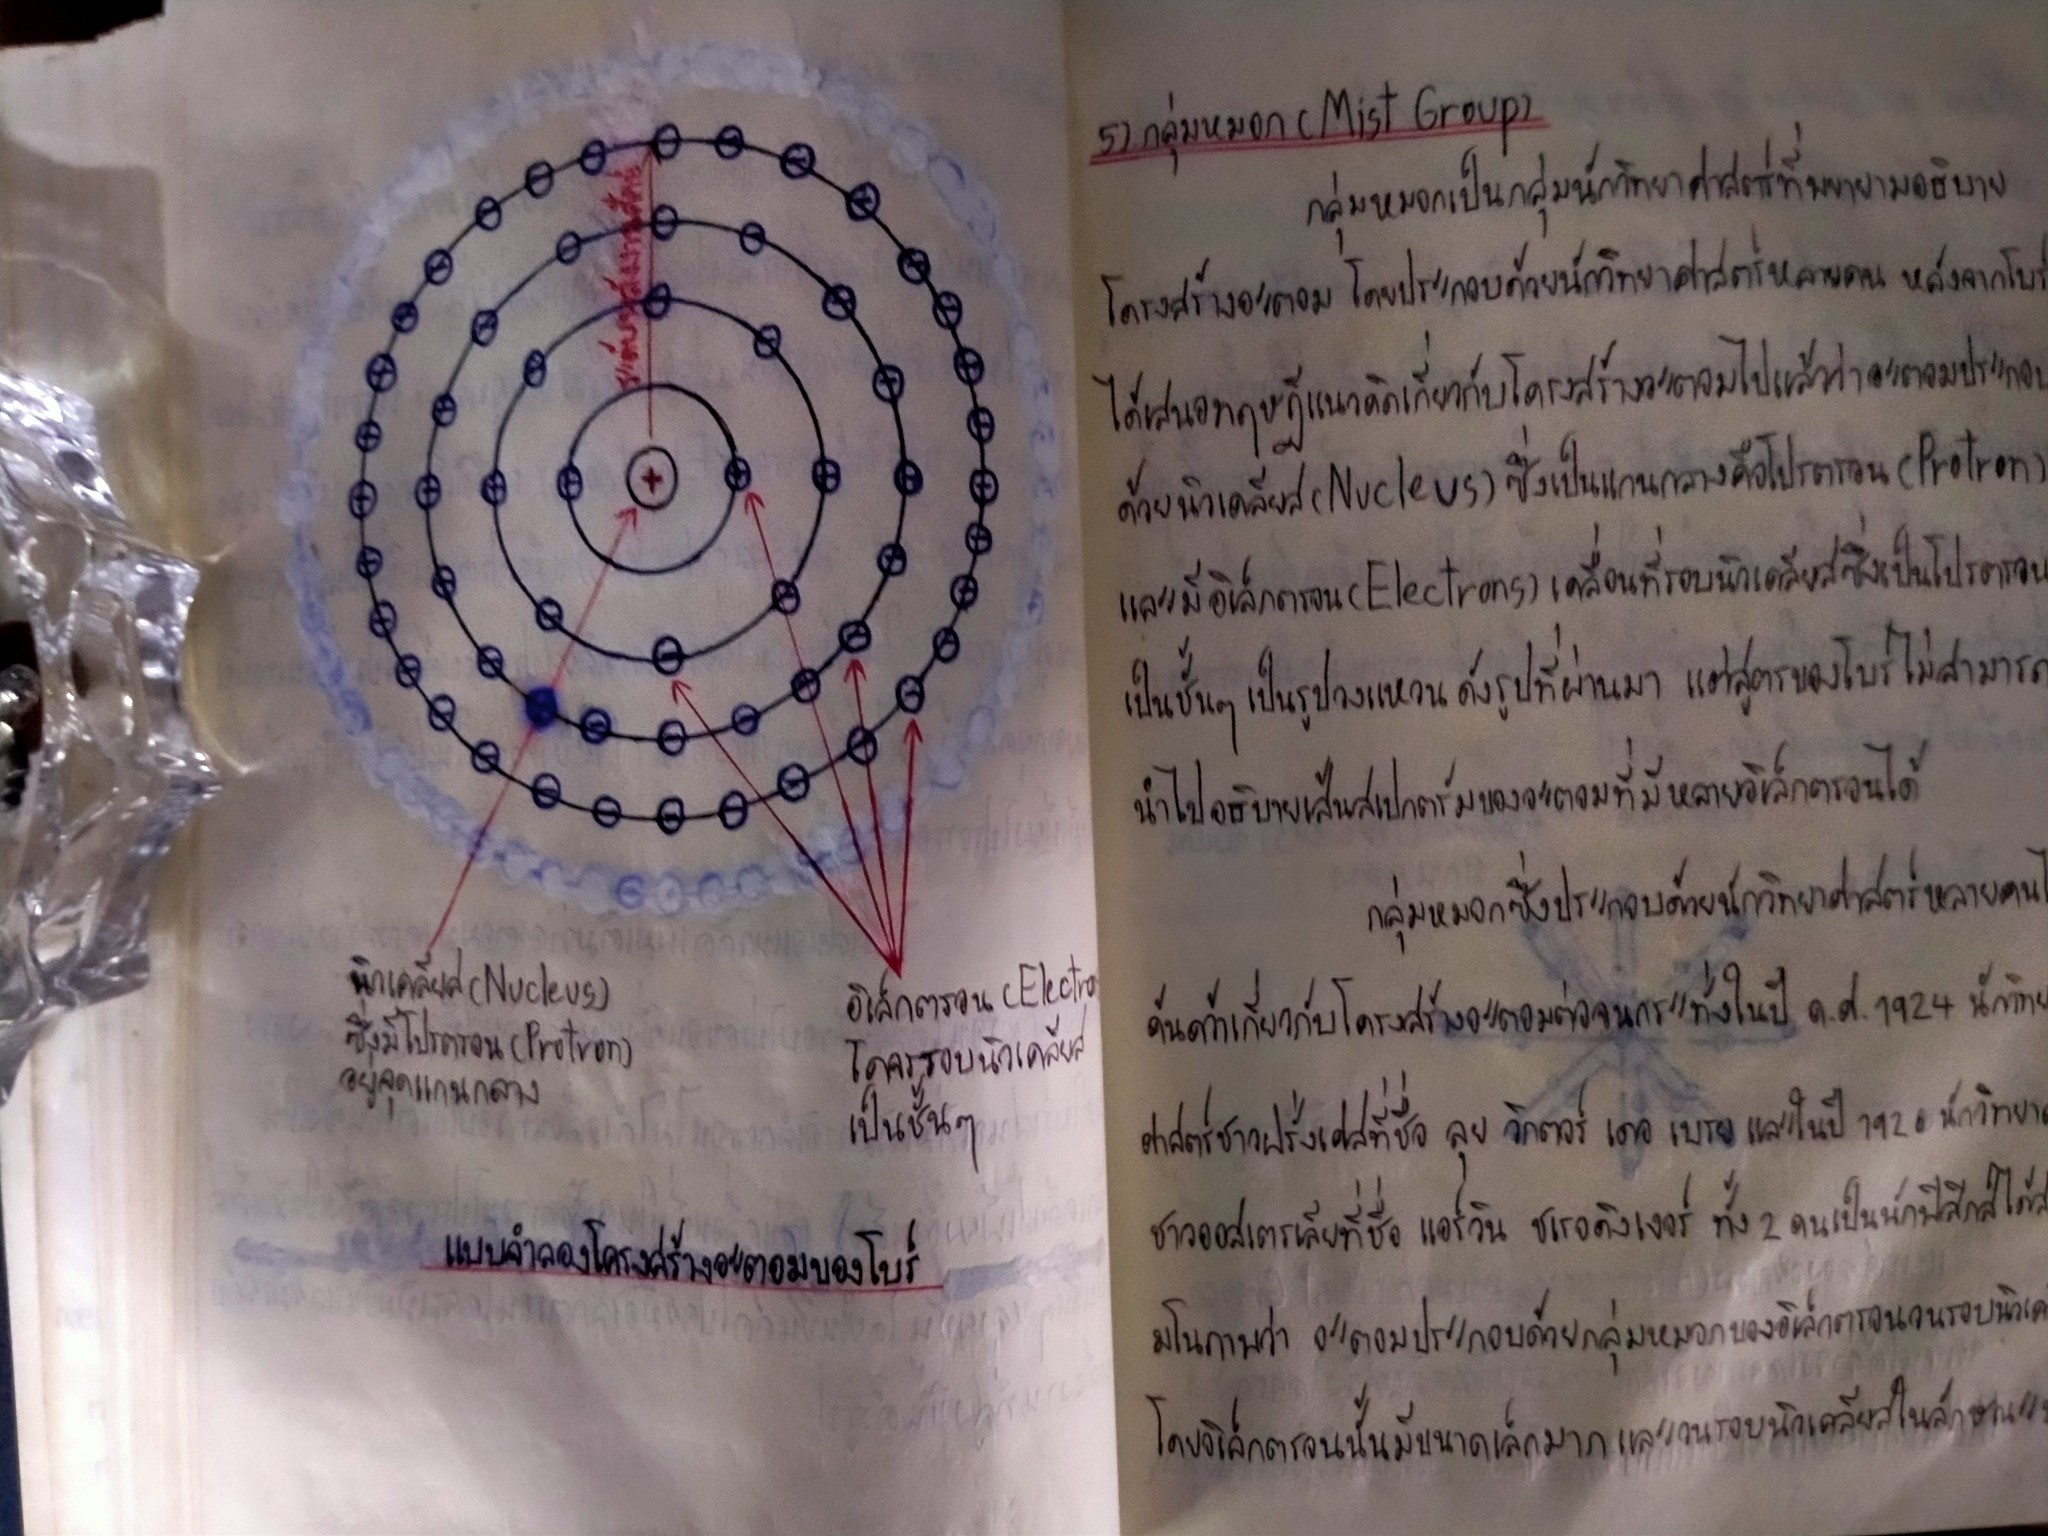 ระดับพลังงานศักย์
นิวเคลียส (Nucleus)
ซึ่งมีโปรตรอน (Protron)
อยู่จุดแกนกลาง
อิเล็กตรอน (Electro
โคจรรอบนิวเคลียส
เป็นชั้นๆ
แบบจำลองโครงสร้างอะตอมของโบร์
5) กลุ่มหมอก (Mist Group)
กลุ่มหมอกเป็นกลุ่มนักวิทยาศาสตร์ที่พยายามอธิบาย
โครงสร้างอะตอม โดยประกอบด้วยนักวิทยาศาสตร์หลายคน หลังจากโบร์
ได้เสนอทฤษฎีแนวคิดเกี่ยวกับโครงสร้างอะตอมไปแล้วว่าอะตอมประกอบ
ด้วยนิวเคลียส (Nucleus) ซึ่งเป็นแกนกลางคือโปรตรอน (Protron)
และมีอิเล็กตรอน (Electrons) เคลื่อนที่รอบนิวเคลียสซึ่งเป็นโปรตรอน
เป็นชั้นๆ เป็นรูปวงแหวน ดังรูปที่ผ่านมา แต่สูตรของโบร์ไม่สามารถ
นำไปอธิบายเส้นสเปกตรัมของอะตอมที่มีหลายอิเล็กตรอนได้
กลุ่มหมอกซึ่งประกอบด้วยนักวิทยาศาสตร์หลายคนไ
ค้นคว้าเกี่ยวกับโครงสร้างอะตอมต่อจนกระทั่งในปี ค.ศ. 1924 นักวิทย
ศาสตร์ชาวฝรั่งเศสที่ชื่อ ลุย วิกตอร์ เดอ เบรย และในปี นักวิทยา
ชาวออสเตรเลียที่ชื่อ แอร์วิน ชเรอดิงเงอร์ ทั้ง 2 คนเป็นนักฟิสิกส์ได้ส
มโนภาพว่า อะตอมประกอบด้วยกลุ่มหมอกของอิเล็กตรอนวนรอบนิวเค
โดยอิเล็กตรอนนั้นมีขนาดเล็กมาก และวนรอบนิวเคลียสในลักษณะ